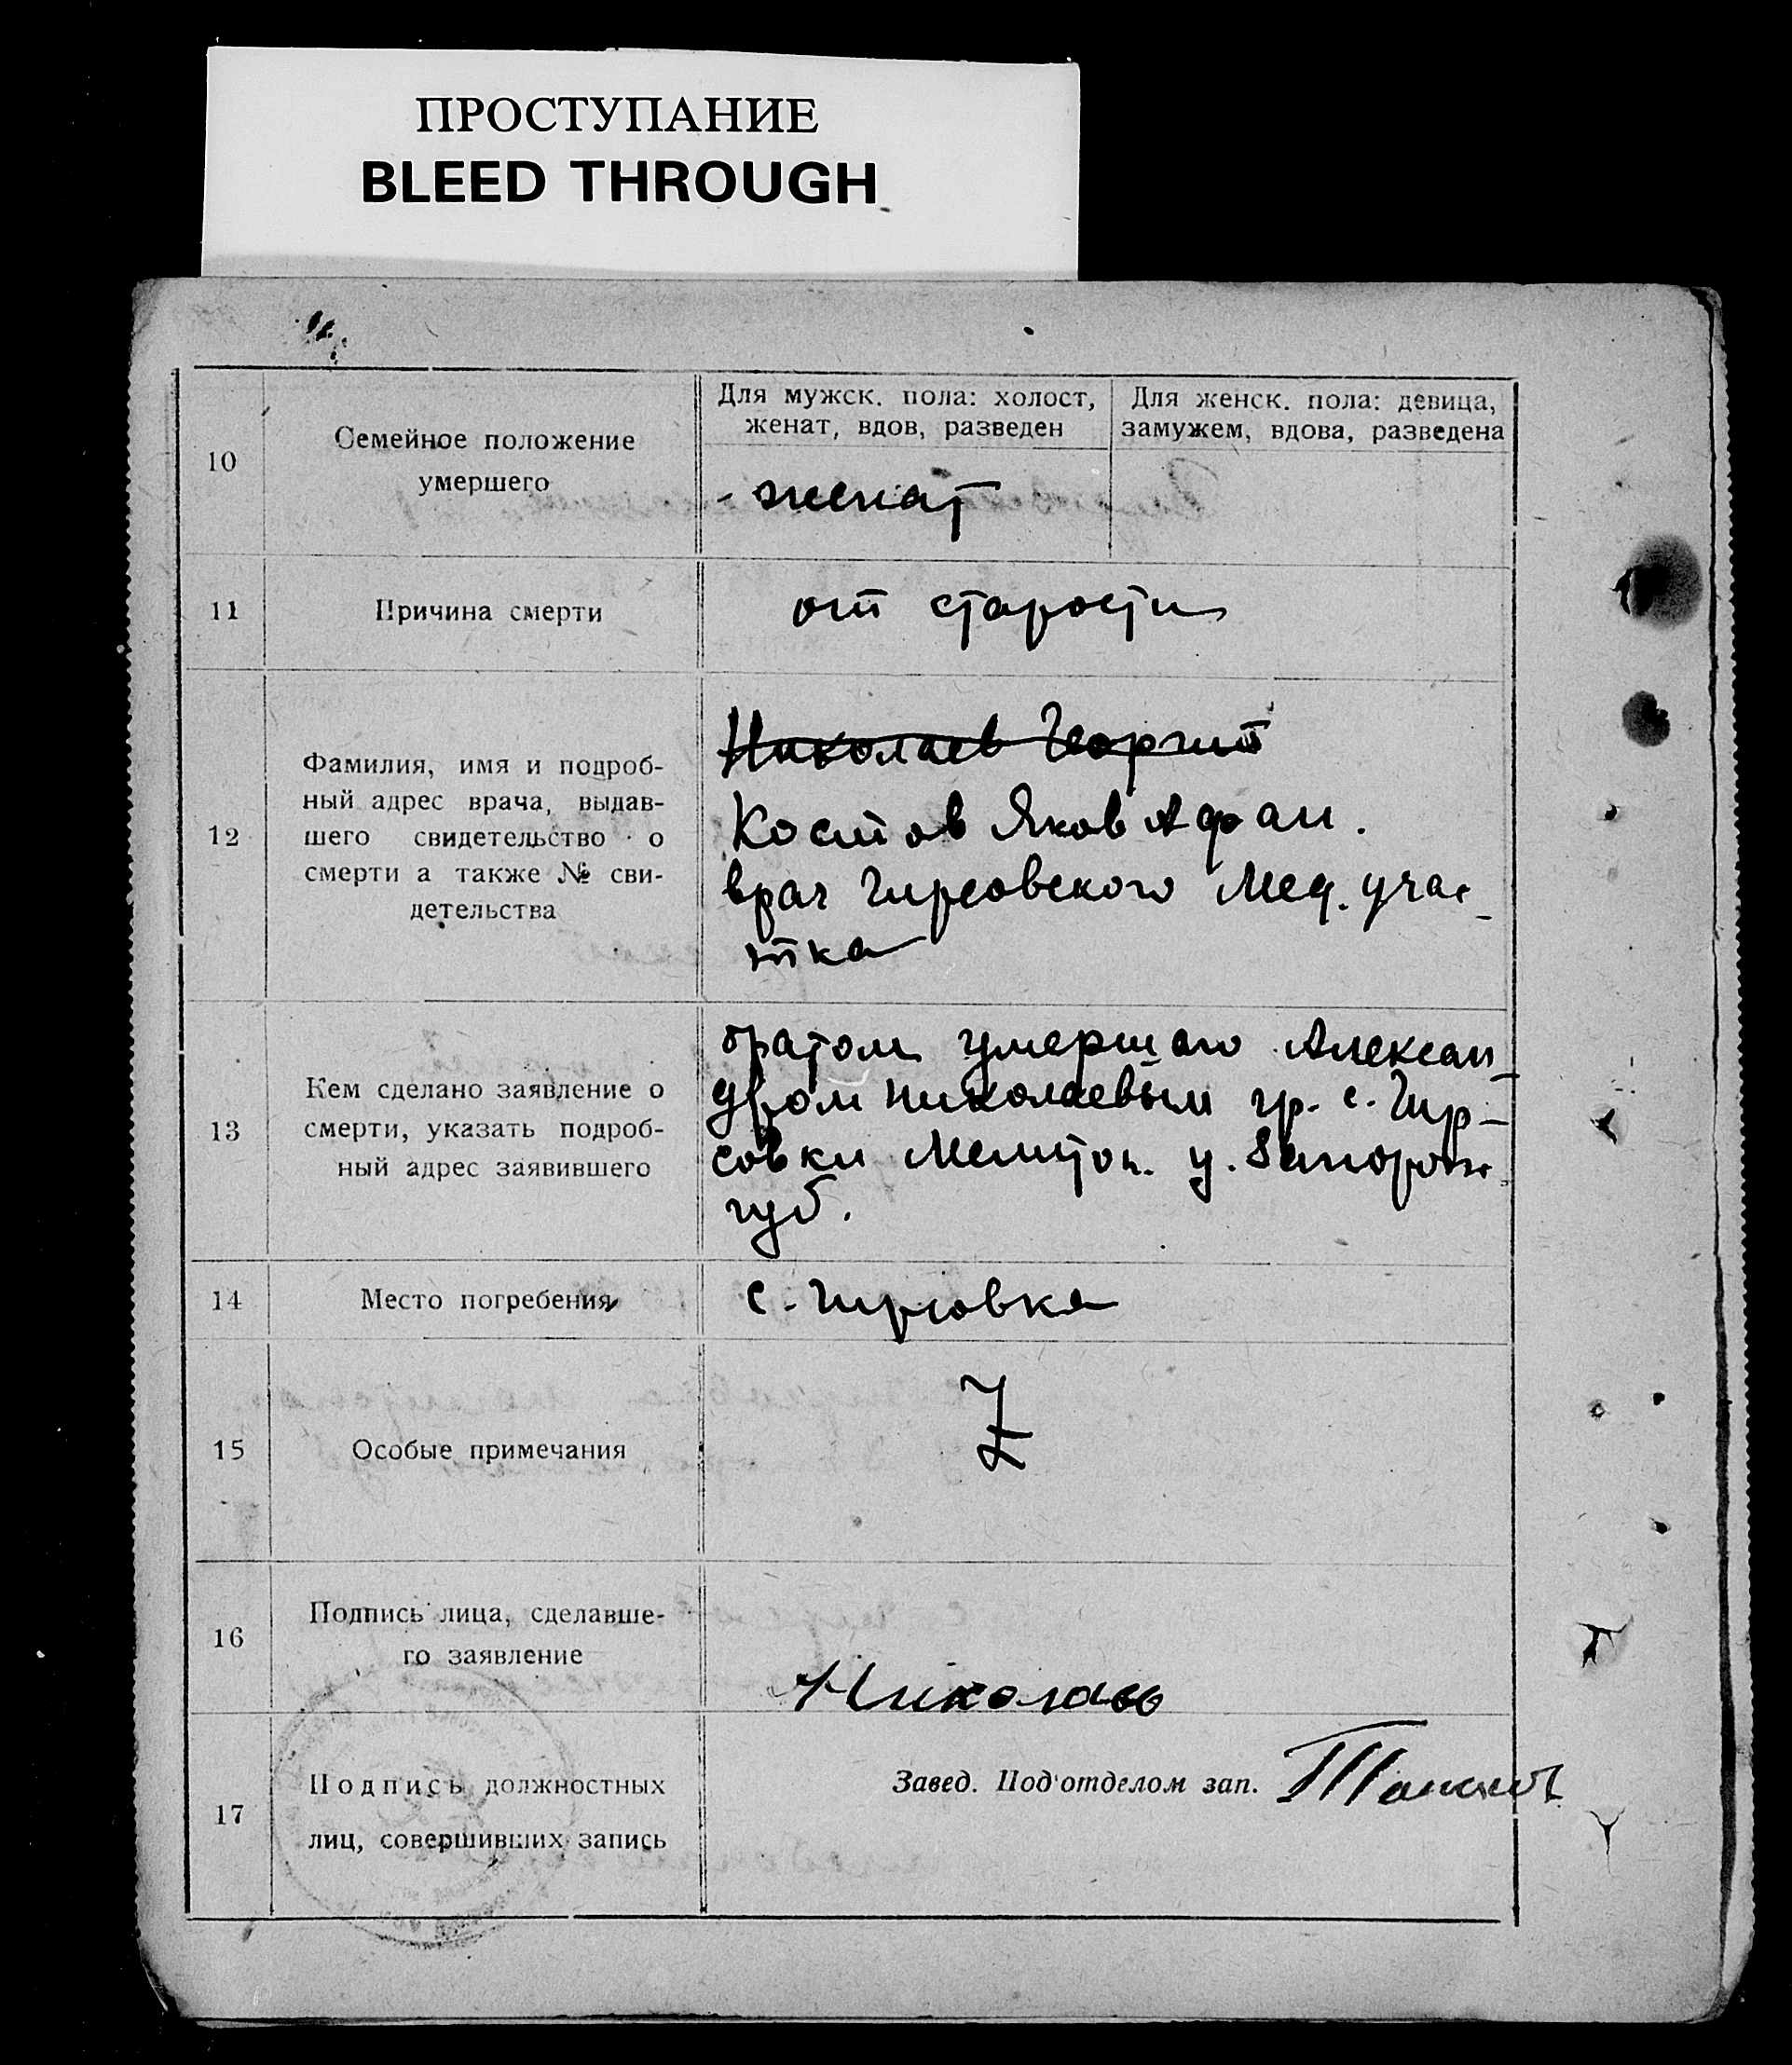 ПРОСТУПАНИЕ
BLEED THROUGH
10
Семейное положение
умершего
Для мужск. пола: холост,
женат, вдов, разведен
Для женск. пола: девица,
замужем, вдова, разведена
женат
11
Причина смерти
от старости
12
Фамилия, имя и подроб-
ный адрес врача, выдав-
шего свидетельство о
смерти а также № сви-
детельства
Николаев Георгий
Костов Яков Афан.
врач Гирсовского Мед. учас-
тка
13
Кем сделано заявление о
смерти, указать подроб-
ный адрес заявившего
братом умершаго Алексан-
дром Николаевым гр. с. Гир-
совки Мелитоп. у. Запорож.
губ.
14
Место погребения
с. Гирсовка
15
Особые примечания
16
Подпись лица, сделавше-
го заявление
Николаев
17
Подпись должностных
лиц, совершивших запись
Завед. Под'отделом зап.